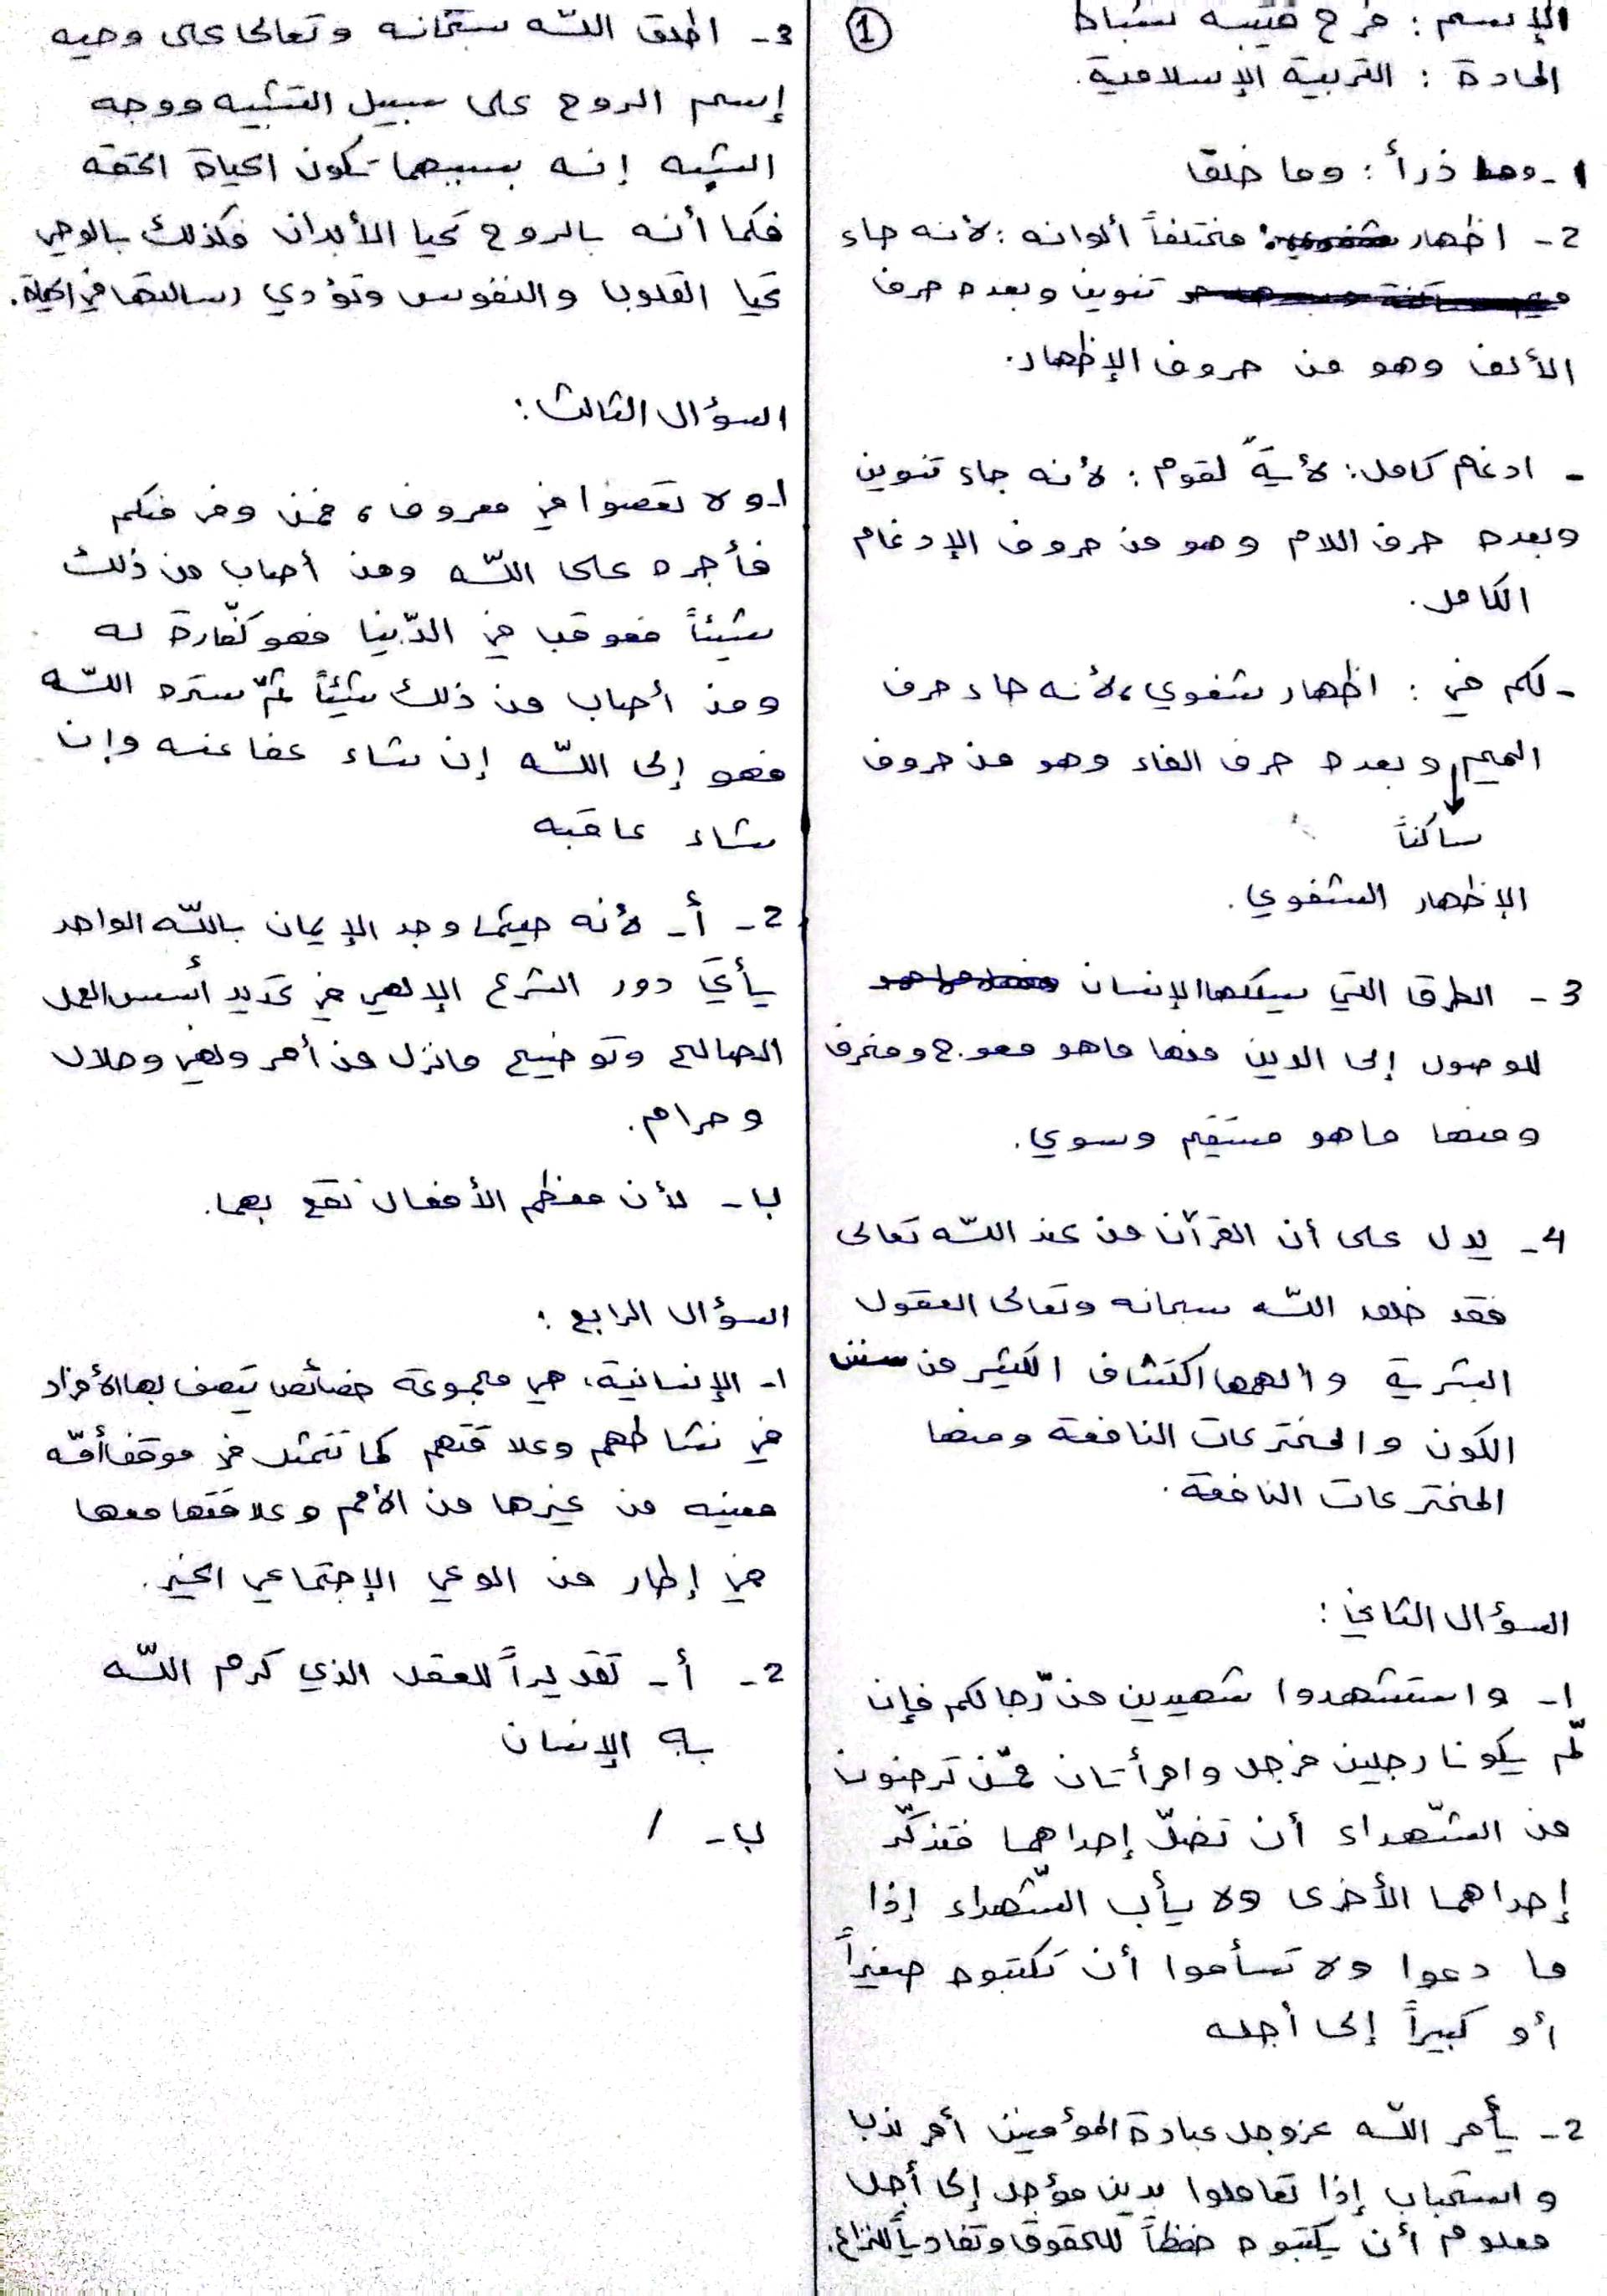 الإسم : فرح هيبه شباط
①
المادة : التربية الإسلامية.
1 - وما ذرأ : وما خلق
2 - اظهار : مختلفاً ألوانه : لأنه جاء
تنوين وبعده حرف
الألف وهو من حروف الإظهار.
- ادغام كامل : لأيةً لقوم : لأنه جاء تنوين
وبعده حرف اللام وهو من حروف الإدغام
الكامل .
- لكم في : اظهار شفوي، لأنه جاء حرف
الميم وبعده حرف الفاء وهو من حروف
ساكناً
الإظهار الشفوي .
3 - الطرق التي سيلكها الإنسان
للوصول إلى الدين منها ماهو معوج ومنحرف
ومنها ماهو مستقيم وسوي .
4 - يدل على أن القرآن من عند اللّه تعالى
فقد خلق اللّه سبحانه وتعالى العقول
البشرية والهمها اكتشاف الكثير من سنن
الكون والمخترعات النافعة ومنها
المخترعات النافعة .
السؤال الثاني :
1 - واستشهدوا شهيدين من رّجالكم فإن
لّم يكونا رجلين فرجل وامرأتان ممّن ترضون
من الشّهداء أن تضلّ إحداهما فتذكّر
إحداهما الأخرى ولا يأب الشّهداء إذا
ما دعوا ولا تسأموا أن تكتبوه صغيراً
أو كبيراً إلى أجله
2 - يأمر اللّه عزوجل عبادة المؤمنين أمر ندب
واستحباب إذا تعاملوا بدين مؤجل إلى أجل
معلوم أن يكتبوه حفظاً للحقوق وتفادياً للنزاع.
3 - اطلق اللّه سبحانه وتعالى على وحيه
إسم الروح على سبيل التشبيه ووجه
الشبه إنه بسببهما تكون الحياة الحقه
فكما أنه بالروح تحيا الأبدان فكذلك بالوحي
تحيا القلوب والنفوس وتؤدي رسالتها في الحياة.
السؤال الثالث :
1 - ولا تعصوا في معروف ، فمن وفى منكم
فأجره على اللّه ومن أصاب من ذلك
شيئاً فعوقب في الدّنيا فهو كفّارة له
ومن أصاب من ذلك شيئاً ثمّ ستره اللّه
فهو إلى اللّه إن شاء عفا عنه وإن
شاء عاقبه
2 - أ - لأنه حيثما وجد الإيمان باللّه الواحد
يأتي دور الشرع الإلهي في تحديد أُسس العمل
الصالح وتوضيح مانزل من أمر ونهي وحلال
وحرام .
ب - لأن معظم الأفعال تقع بهما.
السؤال الرابع :
1 - الإنسانية : هي مجموعة خصائص يتصف بها الأفراد
في نشاطهم وعلاقتهم كما تتمثل في موقف أمّه
معينه من غيرها من الأمم وعلاقتها معها
في إطار من الوعي الإجتماعي الخير.
2 - أ - تقديراً للعقل الذي كرم اللّه
به الإنسان
ب - /